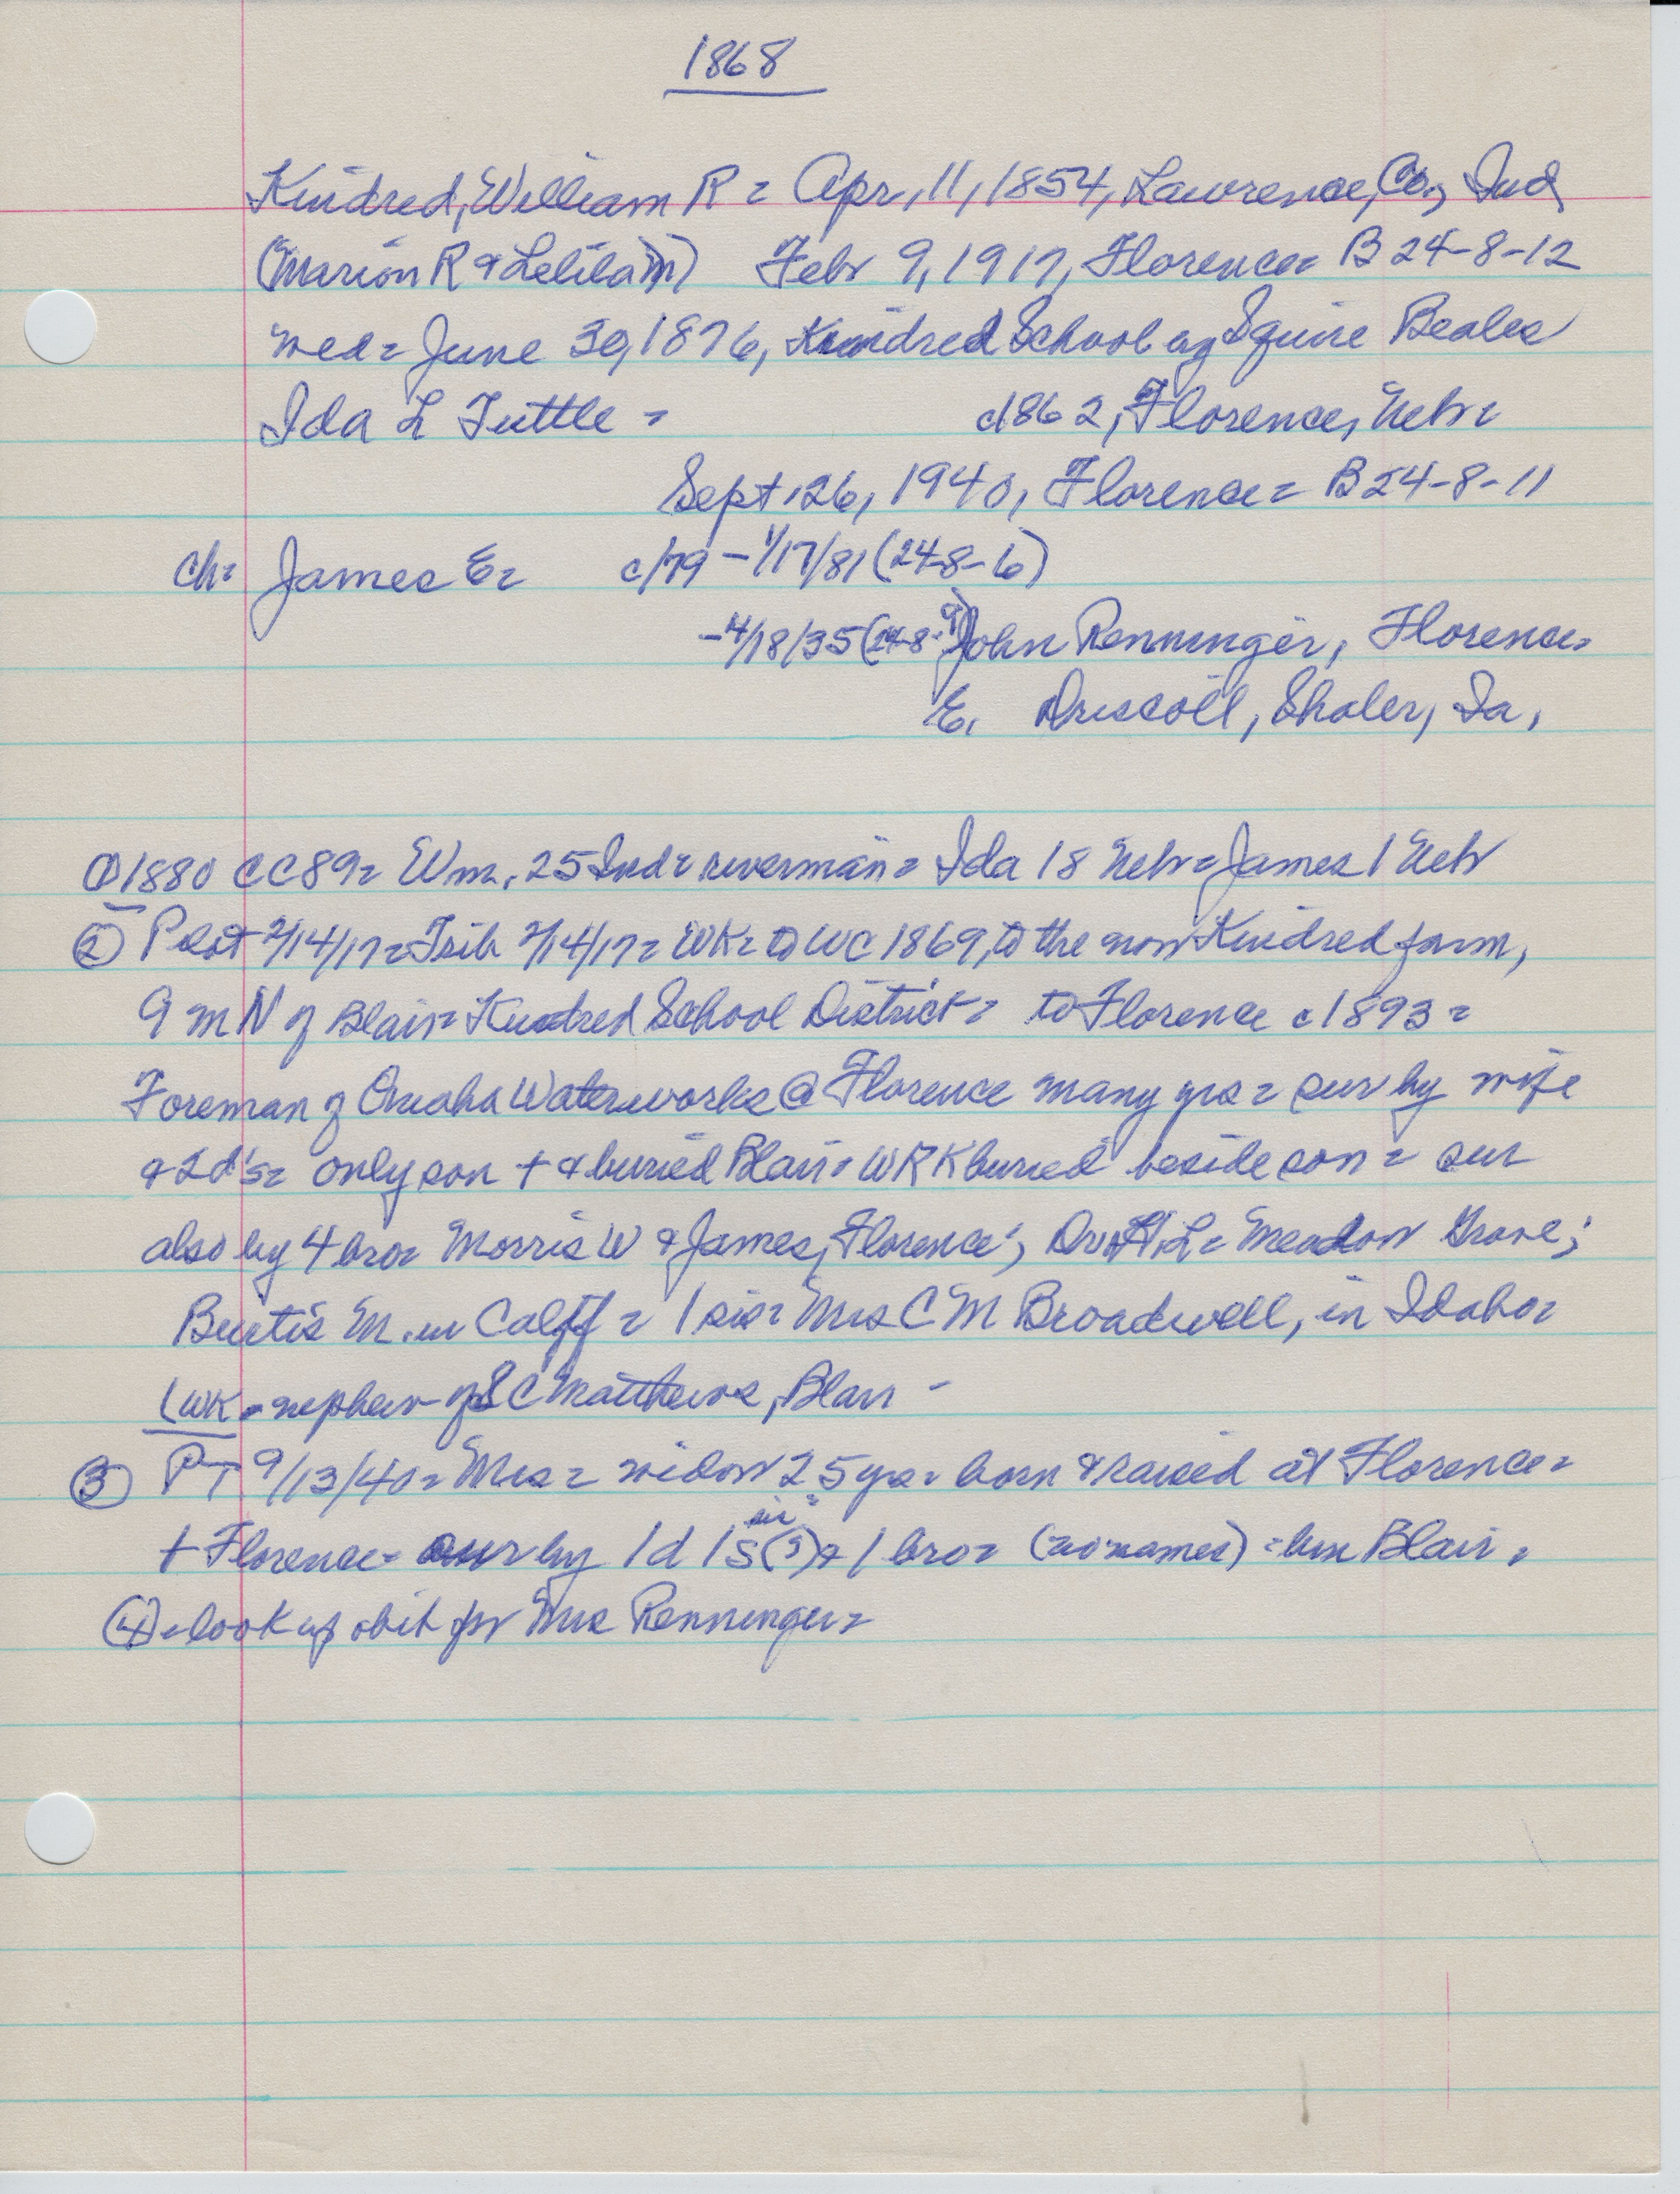 1868
Kindred, William R = Apr, 11, 1854, Lawrence, Co, Ind,
(Marion R & Lelila M) Febr 9, 1917, Florence = B 24-8-12
wed = June 30, 1876, Kindred School by Squire Beales
Ida L Tuttle = c1862, Florence, Nebr =
Sept 26, 1940, Florence = B 24-8-11
ch = James E = c/79 - 1/17/81 (24-8-6)
-4/18/35 (24-8-9) John Renninger, Florence =
E. Driscoll, Shaler, Ia,
① 1880 CC89 = Wm, 25 Ind = riverman = Ida 18 Nebr = James 1 Nebr
② Pilot 2/14/17 = Trib 2/14/17 = WK = to WC 1869, to the now Kindred farm,
9 m N of Blair = Kindred School District = to Florence c1893 =
Foreman of Omaha Waterworks @ Florence many yrs = sur by wife
& 2 d's = only son + & buried Blair = WRK buried beside son = sur
also by 4 bro = Morris W & James, Florence; Dr H.L = Meadow Grove;
Burtis M. in Calif = 1 sis = Mrs C M Broadwell, in Idaho =
WK = nephew of S C Matthews, Blair -
③ PT 9/13/40 = Mrs = widow 25 yrs = born & raised at Florence =
sis
+ Florence = sur by 1 d 1 s (?) & 1 bro = (no names) = bur Blair =
④ = look up obit for Mrs Renninger =